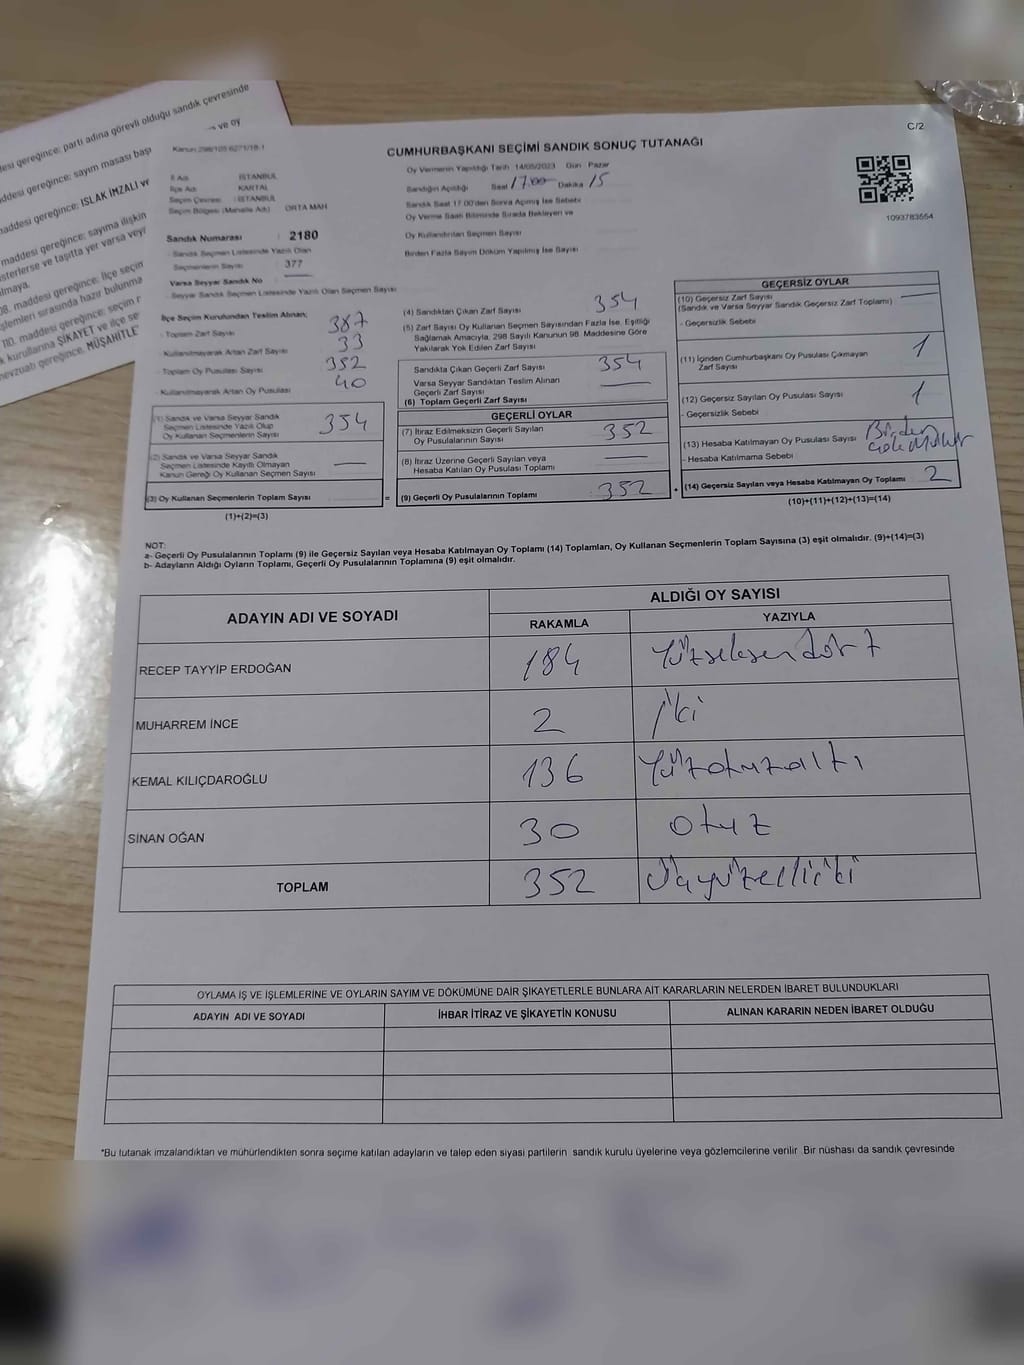 desi gereğince: parti adına görevli olduğu sandık çevresinde
ve oy
addesi gereğince: sayım masası başı
maddesi gereğince: ISLAK İMZALI ve
maddesi gereğince: sayıma ilişkin
isterlerse ve taşıtta yer varsa veya
08. maddesi gereğince: ilçe seçim
işlemleri sırasında hazır bulunma
110. maddesi gereğince: seçim
k kurullarına ŞİKAYET ve ilçe se
mevzuatı gereğince. MÜŞAHİTLE
C/2
CUMHURBAŞKANI SEÇİMİ SANDIK SONUÇ TUTANAĞI
1093783554
İl Adı : İSTANBUL
İlçe Adı : KARTAL
Seçim Çevresi : İSTANBUL
Seçim Bölgesi (Mahalle Adı) ORTA MAH
Sandık Numarası : 2180
Sandık Seçmen Listesinde Yazılı Olan
Seçmenlerin Sayısı : 377
Varsa Seyyar Sandık No
Seyyar Sandık Seçmen Listesinde Yazılı Olan Seçmen Sayısı
Oy Vermenin Yapıldığı Tarih 14/05/2023 Gün Pazar
Sandığın Açıldığı Saat 17.00 Dakika 15
Sandık Saat 17.00'den Sonra Açılmış İse Sebebi
Oy Verme Saati Bitiminde Sırada Bekleyen ve
Oy Kullandırılan Seçmen Sayısı
Birden Fazla Sayım Döküm Yapılmış İse Sayısı
İlçe Seçim Kurulundan Teslim Alınan;
- Toplam Zarf Sayısı 387
- Kullanılmayarak Artan Zarf Sayısı 33
- Toplam Oy Pusulası Sayısı 352
- Kullanılmayarak Artan Oy Pusulası 40
(1) Sandık ve Varsa Seyyar Sandık
Seçmen Listesinde Yazılı Olup
Oy Kullanan Seçmenlerin Sayısı 354
(2) Sandık ve Varsa Seyyar Sandık
Seçmen Listesinde Kayıtlı Olmayan
Kanun Gereği Oy Kullanan Seçmen Sayısı —
(3) Oy Kullanan Seçmenlerin Toplam Sayısı =
(1)+(2)=(3)
(4) Sandıktan Çıkan Zarf Sayısı 354
(5) Zarf Sayısı Oy Kullanan Seçmen Sayısından Fazla İse, Eşitliği
Sağlamak Amacıyla, 298 Sayılı Kanunun 98. Maddesine Göre
Yakılarak Yok Edilen Zarf Sayısı
Sandıkta Çıkan Geçerli Zarf Sayısı 354
Varsa Seyyar Sandıktan Teslim Alınan
Geçerli Zarf Sayısı —
(6) Toplam Geçerli Zarf Sayısı
GEÇERLİ OYLAR
(7) İtiraz Edilmeksizin Geçerli Sayılan
Oy Pusulalarının Sayısı 352
(8) İtiraz Üzerine Geçerli Sayılan veya
Hesaba Katılan Oy Pusulası Toplamı —
(9) Geçerli Oy Pusulalarının Toplamı 352 +
GEÇERSİZ OYLAR
(10) Geçersiz Zarf Sayısı —
(Sandık ve Varsa Seyyar Sandık Geçersiz Zarf Toplamı)
- Geçersizlik Sebebi
(11) İçinden Cumhurbaşkanı Oy Pusulası Çıkmayan
Zarf Sayısı 1
(12) Geçersiz Sayılan Oy Pusulası Sayısı 1
- Geçersizlik Sebebi
(13) Hesaba Katılmayan Oy Pusulası Sayısı Birden
- Hesaba Katılmama Sebebi çok Mühür
(14) Geçersiz Sayılan veya Hesaba Katılmayan Oy Toplamı 2
(10)+(11)+(12)+(13)=(14)
NOT:
a- Geçerli Oy Pusulalarının Toplamı (9) ile Geçersiz Sayılan veya Hesaba Katılmayan Oy Toplamı (14) Toplamları, Oy Kullanan Seçmenlerin Toplam Sayısına (3) eşit olmalıdır. (9)+(14)=(3)
b- Adayların Aldığı Oyların Toplamı, Geçerli Oy Pusulalarının Toplamına (9) eşit olmalıdır.
ADAYIN ADI VE SOYADI
ALDIĞI OY SAYISI
RAKAMLA YAZIYLA
RECEP TAYYİP ERDOĞAN 184 Yüzseksendört
MUHARREM İNCE 2 iki
KEMAL KILIÇDAROĞLU 136 Yüzotuzaltı
SİNAN OĞAN 30 otuz
TOPLAM 352 üçyüzelliiki
OYLAMA İŞ VE İŞLEMLERİNE VE OYLARIN SAYIM VE DÖKÜMÜNE DAİR ŞİKAYETLERLE BUNLARA AİT KARARLARIN NELERDEN İBARET BULUNDUKLARI
ADAYIN ADI VE SOYADI İHBAR İTİRAZ VE ŞİKAYETİN KONUSU ALINAN KARARIN NEDEN İBARET OLDUĞU
*Bu tutanak imzalandıktan ve mühürlendikten sonra seçime katılan adayların ve talep eden siyasi partilerin sandık kurulu üyelerine veya gözlemcilerine verilir Bir nüshası da sandık çevresinde